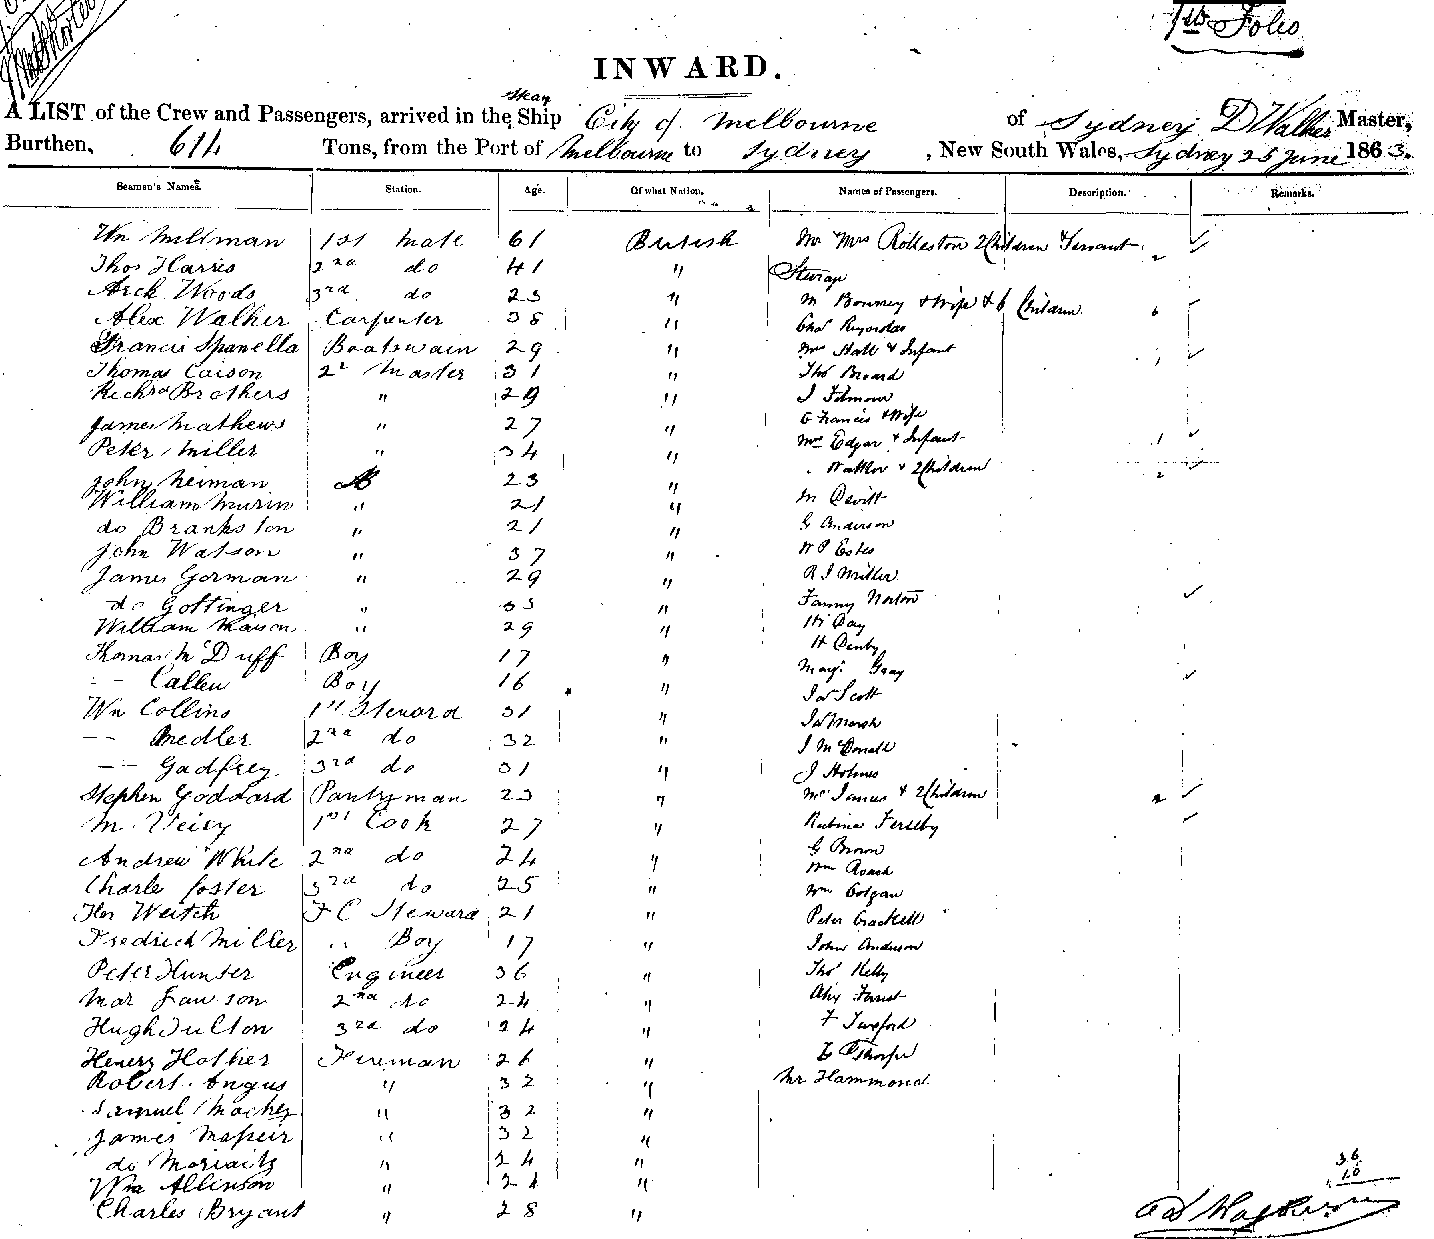 1st Folio
INWARD.
A LIST of the Crew and Passengers, arrived in the Ship City of Melbourne of Sydney D Walker Master,
Burthen, 614 Tons, from the Port of Melbourne to Sydney, New South Wales, Sydney 25 June 1863.
Seamen's Names. Station. Age. Of what Nation. Names of Passengers. Description. Remarks.
Wm Millman 1st Mate 61 British Mr Mrs Rolleston 2 Children & Servant
Thos Harris 2nd do 41 "
Arch Woods 3rd do 23 " Mr Bonney & Wife & 6 Children 6
Alex Walker Carpenter 38 " Chas Reynolds
Francis Spanella Boatswain 29 " Mrs Hall & Infant 1
Thomas Carson 2r Master 31 " Thos Broard
Richrd Brothers " 29 " J Filmour
James Mathews " 27 " G Francis & Wife
Peter Miller " 34 " Mrs Edgar & Infant 1
John Neiman AB 23 " " Walker & 2 Children 2
William Murin " 21 " M Devitt
do Brankston " 21 " G Anderson
John Watson " 37 " W P Estes
James Gorman " 29 " R J Miller
do Gottinger " 33 " Fanny Norton
William Mason " 29 " W Day
Thomas McDuff Boy 17 " H Denby
-- Callen Boy 16 " Margt Gray
Wm Collins 1st Steward 31 " Jas Scott
-- Medler 2nd do 32 " Jas Marsh
-- Gadfrey 3rd do 31 " J McDonald
Stephen Goddard Pantryman 23 " J Holmes
Mrs James & 2 Children 2
M. Veicy 1st Cook 27 " Rubina Ferselby
Andrew White 2nd do 24 " G Brown
Charle foster 3rd do 25 " Wm Roach
Thos Weitch F C Steward 21 " Wm Colgan
Peter Crackell
Fredrick Miller " Boy 17 " John Anderson
Peter Hunter Engineer 36 " Thos Kelly
Mar Lawson 2nd do 24 " Alex Forrest
Hugh Fulton 3rd do 24 " F Twyford
Henery Hother Fireman 26 " E Thorpe
Robert Angus " 32 " Mr Hammond
Samuel Mackey " 32 "
James " 32 "
do Moriaity " 24 "
Wm Allinson " 24 "
Charles Bryant " 28 "
36
10